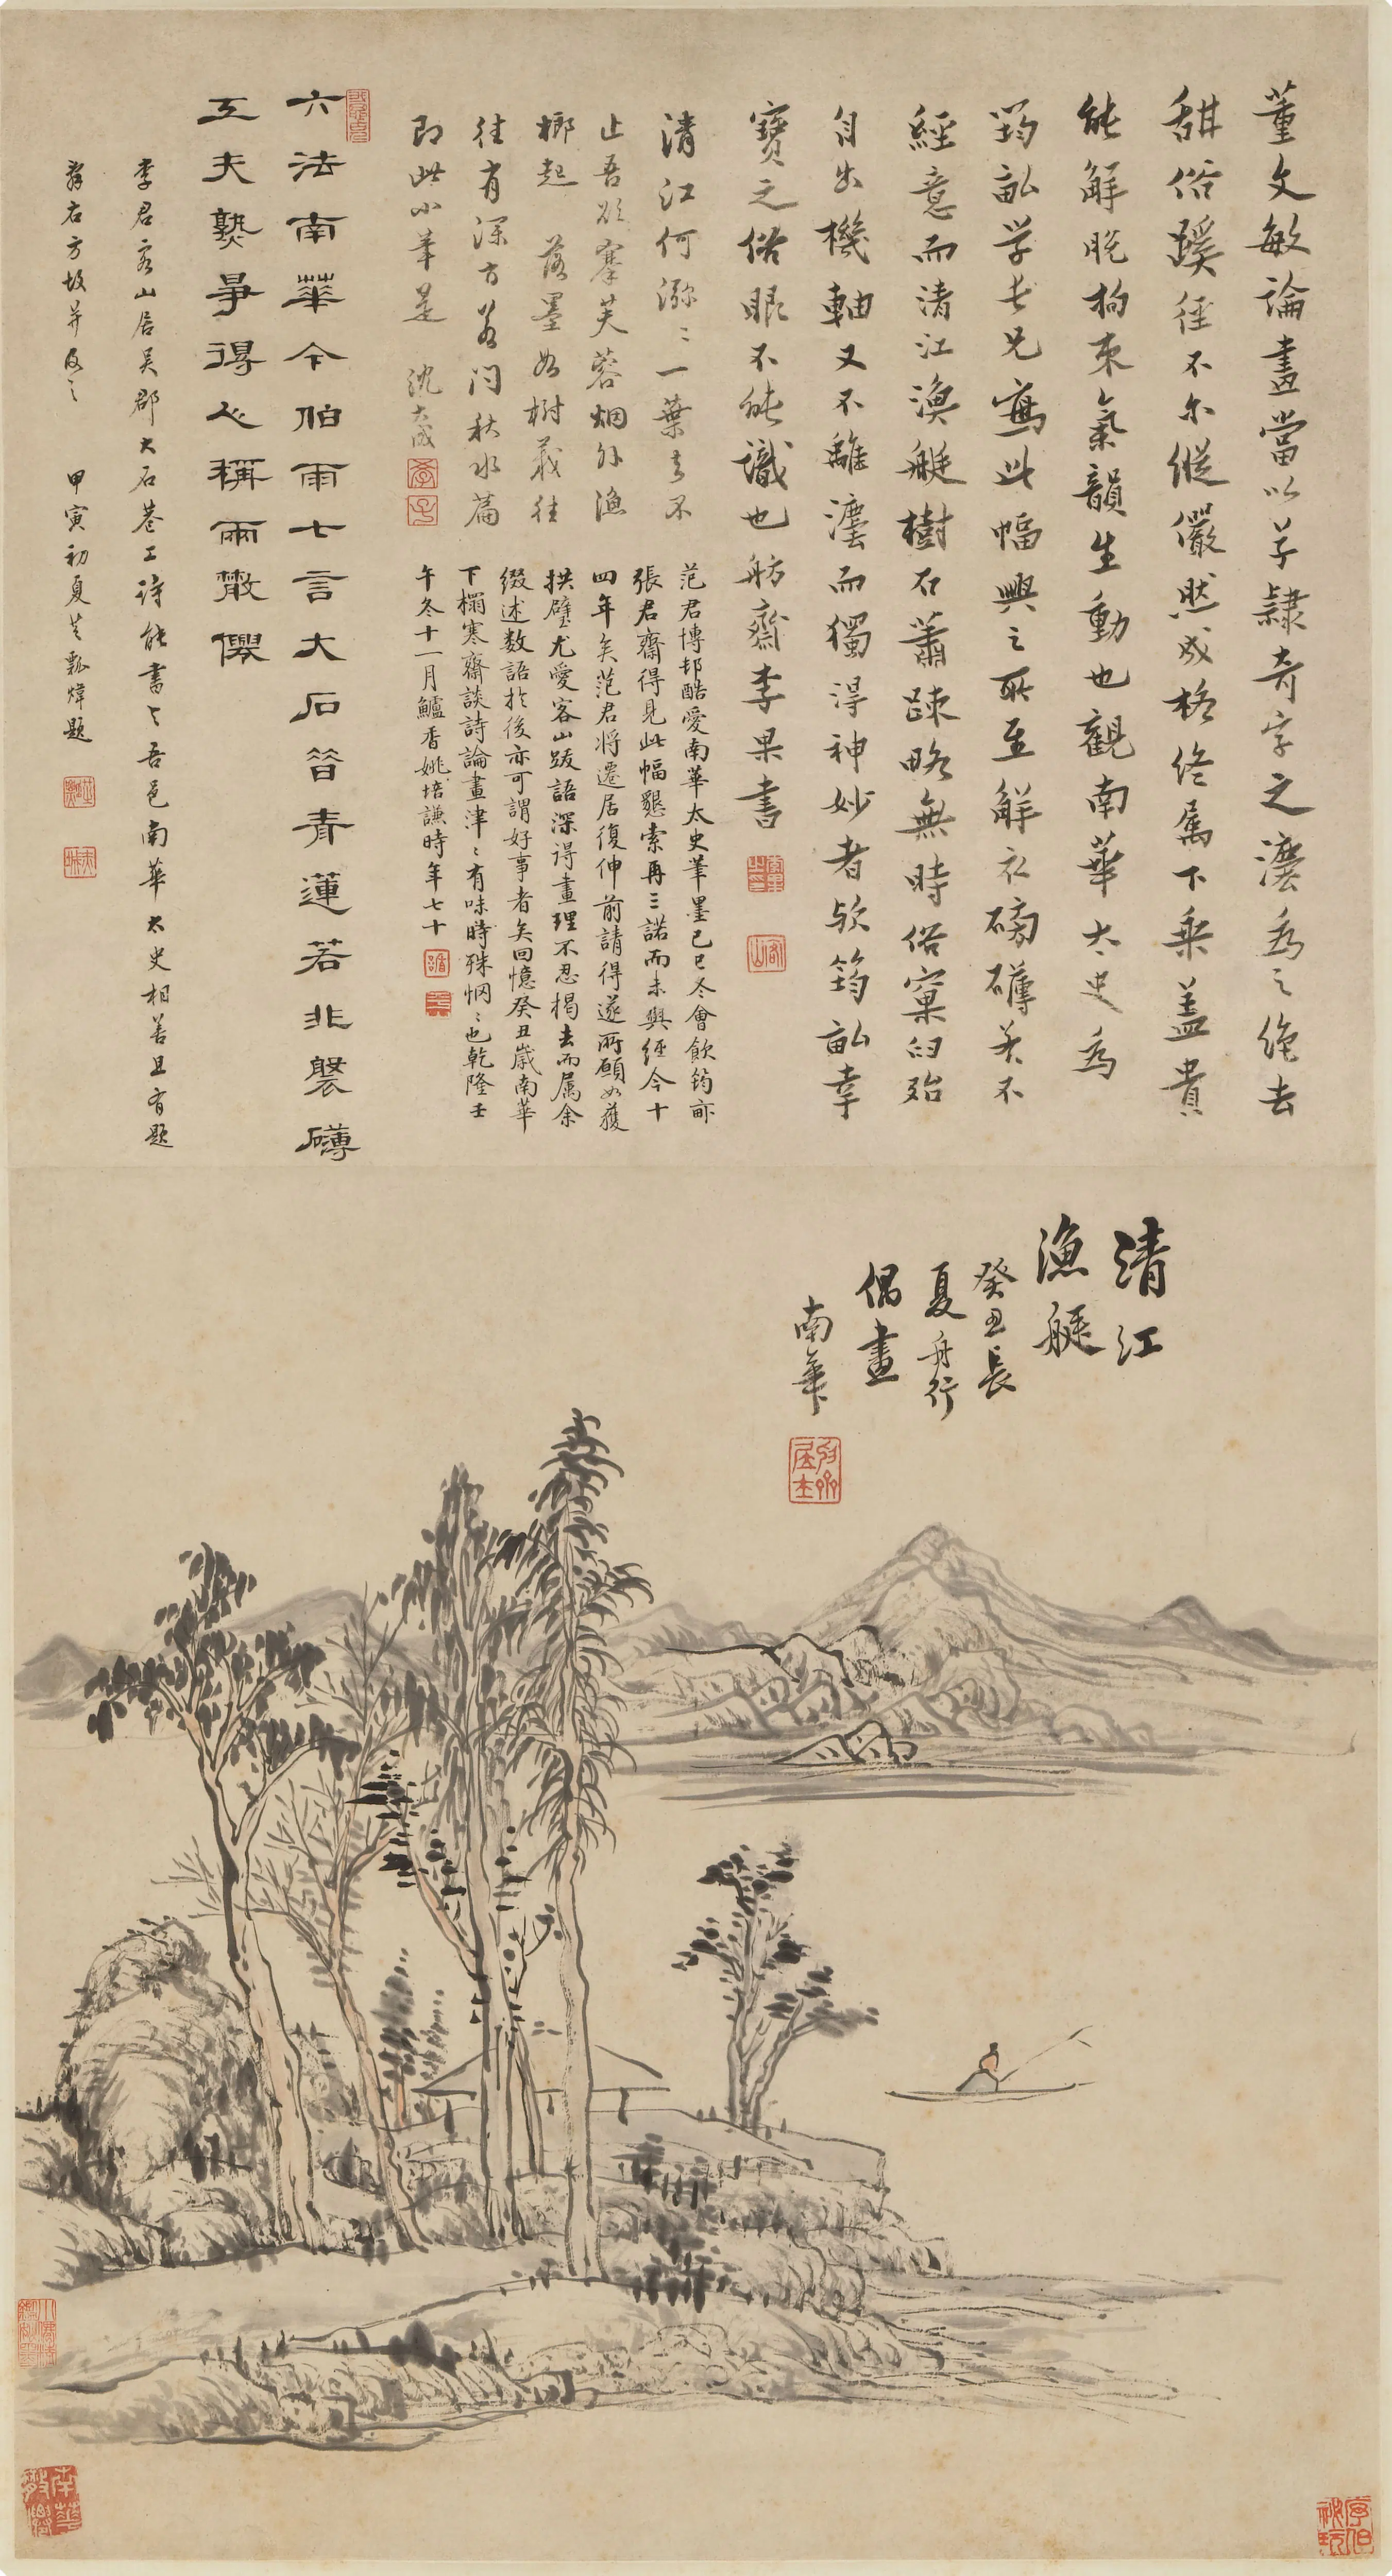 董文敏論畫當以草隸奇字之灋為之絶去
甜俗蹊徑不尔縱儼然成格終属下乘盖貴
能解脱拘束氣韻生動也觀南華太史為
筠畝学長兄寫此幅興之所至解衣磅礴若不
經意而清江漁艇樹石蕭踈略無時俗窠臼殆
自出機軸又不離灋而獨得神妙者欤筠畝幸
寶之俗眼不能識也舫齋李果書
清江何瀰〻一葉去不
止吾欲搴芙蓉烟外漁
榔起 落墨如樹栽往
往有深方若问秋水篇
即此小筆是 沈大成
范君博邨酷愛南華太史筆墨己巳冬會飲筠畝
張君齋得見此幅懇索再三諾而未與經今十
四年矣范君将遷居復伸前請得遂所願如獲
拱璧尤愛客山跋語深得畫理不忍揭去而属余
缀述数語於後亦可謂好事者矣回憶癸丑嵗南華
下榻寒齋談詩論畫津〻有味時殊惘〻也乾隆壬
午冬十一月鱸香姚培謙時年七十
六法南華今伯雨七言大石晉青蓮若非槃礴
工夫熟爭得人稱兩散僊
李君客山居吴郡大石巷工诗能書与吾邑南華太史相善且有题
辞右方故并及之 甲寅初夏芝瓢煒题
清江
漁艇
癸丑長
夏舟行
偶畫
南華